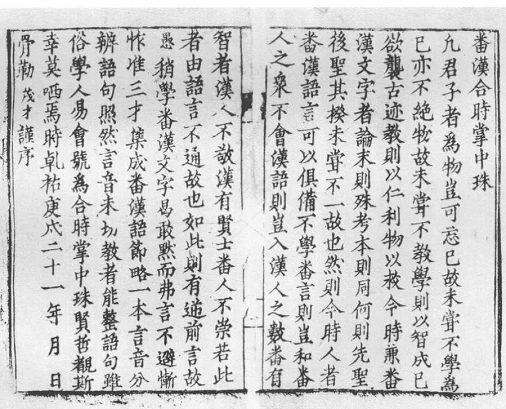 番漢合時掌中珠
凡君子者爲物豈可忘已故未甞不學爲
已亦不絶物故未甞不教學則以智成已
欲襲古迹教則以仁利物以救今時兼番
漢文字者論末則殊考本則同何則先聖
後聖其揆未甞不一故也然則今時人者
番漢語言可以俱備不學番言則豈和番
人之衆不會漢語則豈入漢人之數番有
智者漢人不敬漢有賢士番人不崇若此
者由語言不通故也如此則有逆前言故
愚稍學番漢文字曷敢默而弗言不避慚
怍准三才集成番漢語節略一本言音分
辨語句照然言音未切教者能整語句雖
俗學人易會號爲合時掌中珠賢哲覩斯
幸莫哂焉時乾祐庚戌二十一年 月 日
骨勒 茂才 謹序